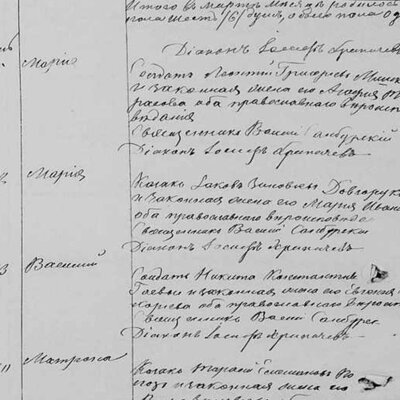 Итого в Мартъ Мѣсяцъ родилось
пола шесть /6/ душъ, обоего пола од
Діаконъ Іосифъ Криничевъ
Марія
Солдатъ Леонтій Григорьевъ
и законная жена его Агафія
расова оба православнаго вѣроиспо
вѣданія
Священникъ Василій Самбурскій
Діаконъ Іосифъ Криничевъ
2 Марія
Козакъ Іаковъ Зиновіевъ Довгорук
и законная жена его Марія Иван
оба православнаго вѣроисповѣд
Священникъ Василій Самбурск
Діаконъ Іосифъ Криничевъ
3 Василій
Солдатъ Никита Константин
Гоевъ и законная жена его Евгенія
Карпова оба православнаго вѣроисп
Священникъ Василій Самбурск
Діаконъ Іосифъ Криничевъ
11 Матрона
Козакъ Тарасій
и законная жена его